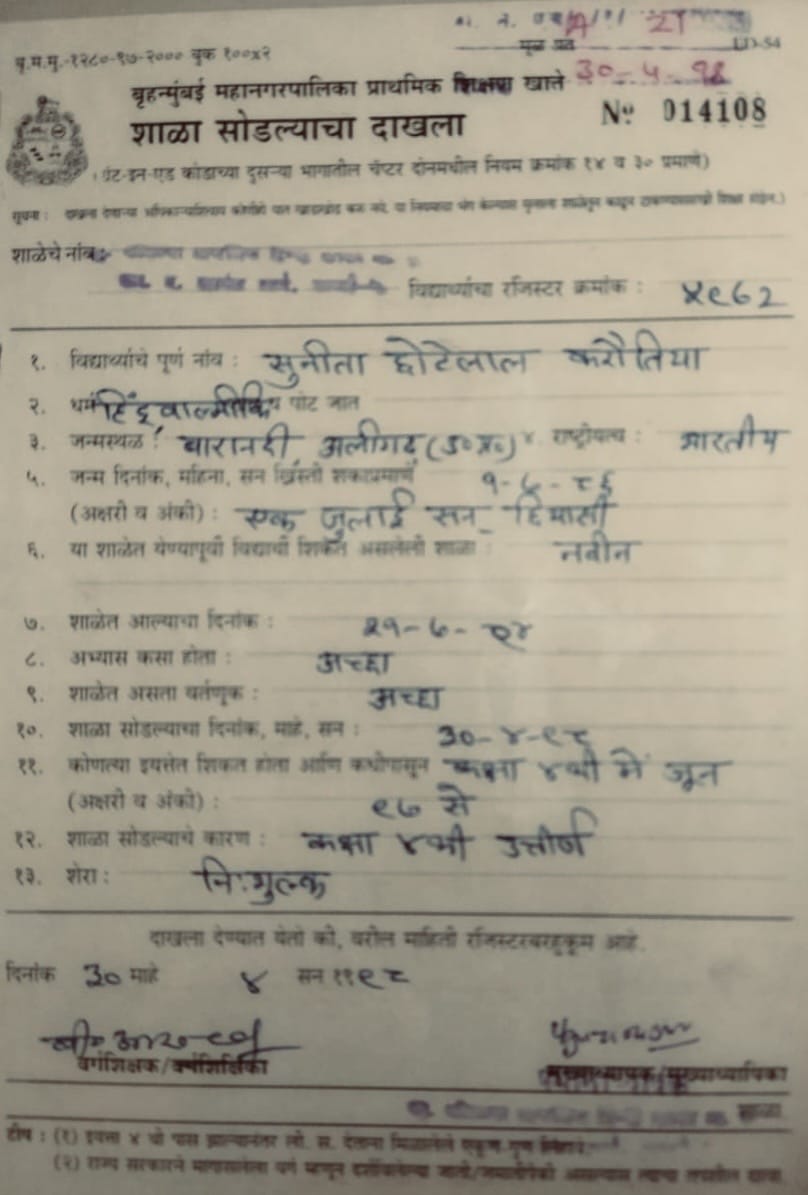 मूळ प्रत 21
UD-54
पृ.म.मु.-१२८०-९७-२००० बुक १००x२
30-4-98
बृहन्मुंबई महानगरपालिका प्राथमिक शिक्षण खाते
शाळा सोडल्याचा दाखला
Nº 014108
(ग्रँट-इन-एड कोडाच्या दुसऱ्या भागातील चॅप्टर दोनमधील नियम क्रमांक १४ व ३० प्रमाणे)
सूचना : दाखला देणाऱ्या अधिकाऱ्याशिवाय कोणीही यात खाडाखोड करू नये.
शाळेचे नांव :
विद्यार्थ्यांचा रजिस्टर क्रमांक : ४९७२
१. विद्यार्थ्यांचे पूर्ण नांव : सुनीता छोटेलाल करौतिया
२. धर्म हिंदू वाल्मीकि पोट जात
३. जन्मस्थळ : बारानदी, अलीगढ़ (उ०प्र०) ४. राष्ट्रीयत्व : भारतीय
५. जन्म दिनांक, महिना, सन ख्रिस्ती शकाप्रमाणे १-७-८६
(अक्षरी व अंकी) : एक जुलाई सन छियासी
६. या शाळेत येण्यापूर्वी विद्यार्थी शिकत असलेली शाळा : नवीन
७. शाळेत आल्याचा दिनांक : २१-७-९४
८. अभ्यास कसा होता : अच्छा
९. शाळेत असता वर्तणूक : अच्छा
१०. शाळा सोडल्याचा दिनांक, माहे, सन : ३०-४-९८
११. कोणत्या इयत्तेत शिकत होता आणि कधीपासून कक्षा ४थी में जून
(अक्षरी व अंकी) : ९७ से
१२. शाळा सोडल्याचे कारण : कक्षा ४थी उत्तीर्ण
१३. शेरा : निःशुल्क
दाखला देण्यात येतो की, वरील माहिती रजिस्टरबरहुकूम आहे.
दिनांक ३० माहे ४ सन १९९८
वर्गशिक्षक/वर्गशिक्षिका
मुख्याध्यापक/मुख्याध्यापिका
शाळा
टीप : (१) इयत्ता ४ थी पास झाल्यानंतर
(२) राज्य सरकारने मागासलेला वर्ग म्हणून